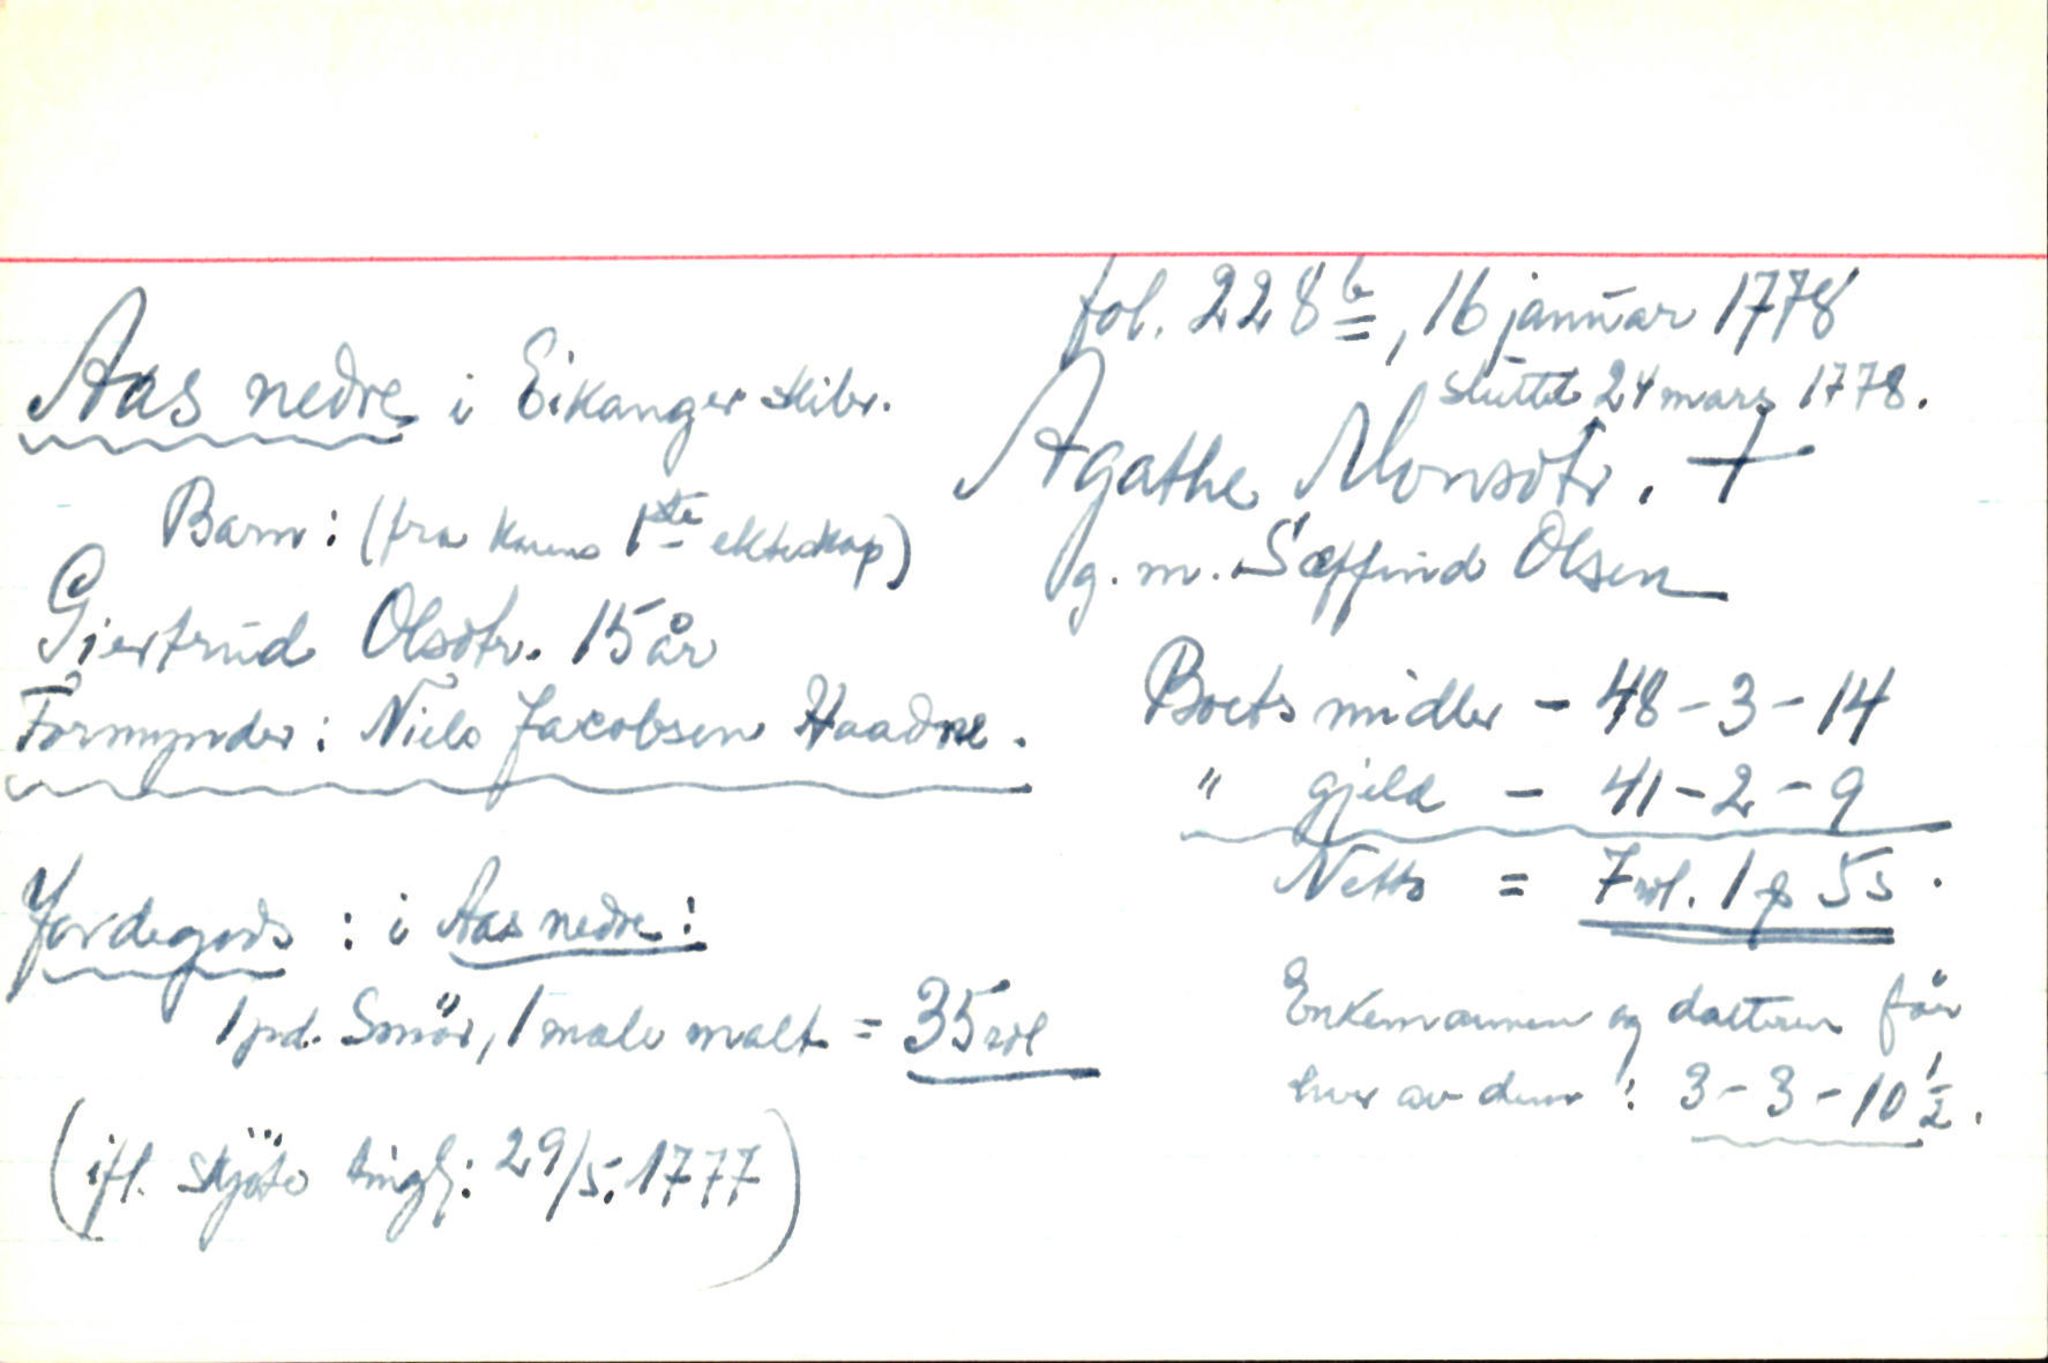 fol. 228 b, 16 januar 1778
sluttet 24 mars 1778.
Aas nedre i Eikanger skibr.
Agathe Monsdtr. +
g. m. Sæffind Olsen
Barn: (fra konens 1ste ekteskap)
Giertrud Olsdtr. 15 år
Formynder: Niels Jacobsen Haadne.
Boets midler - 48-3-14
" gjeld - 41-2-9
Netto = 7 rdl. 1 ƒ 5 s.
Jordegods: i Aas nedre:
1 pd. Smör, 1 mæle malt = 35 rdl
(ifl. skjöte tingl: 29/5. 1777)
Enkemannen og datteren får
hver av dem: 3-3-10 1/2.